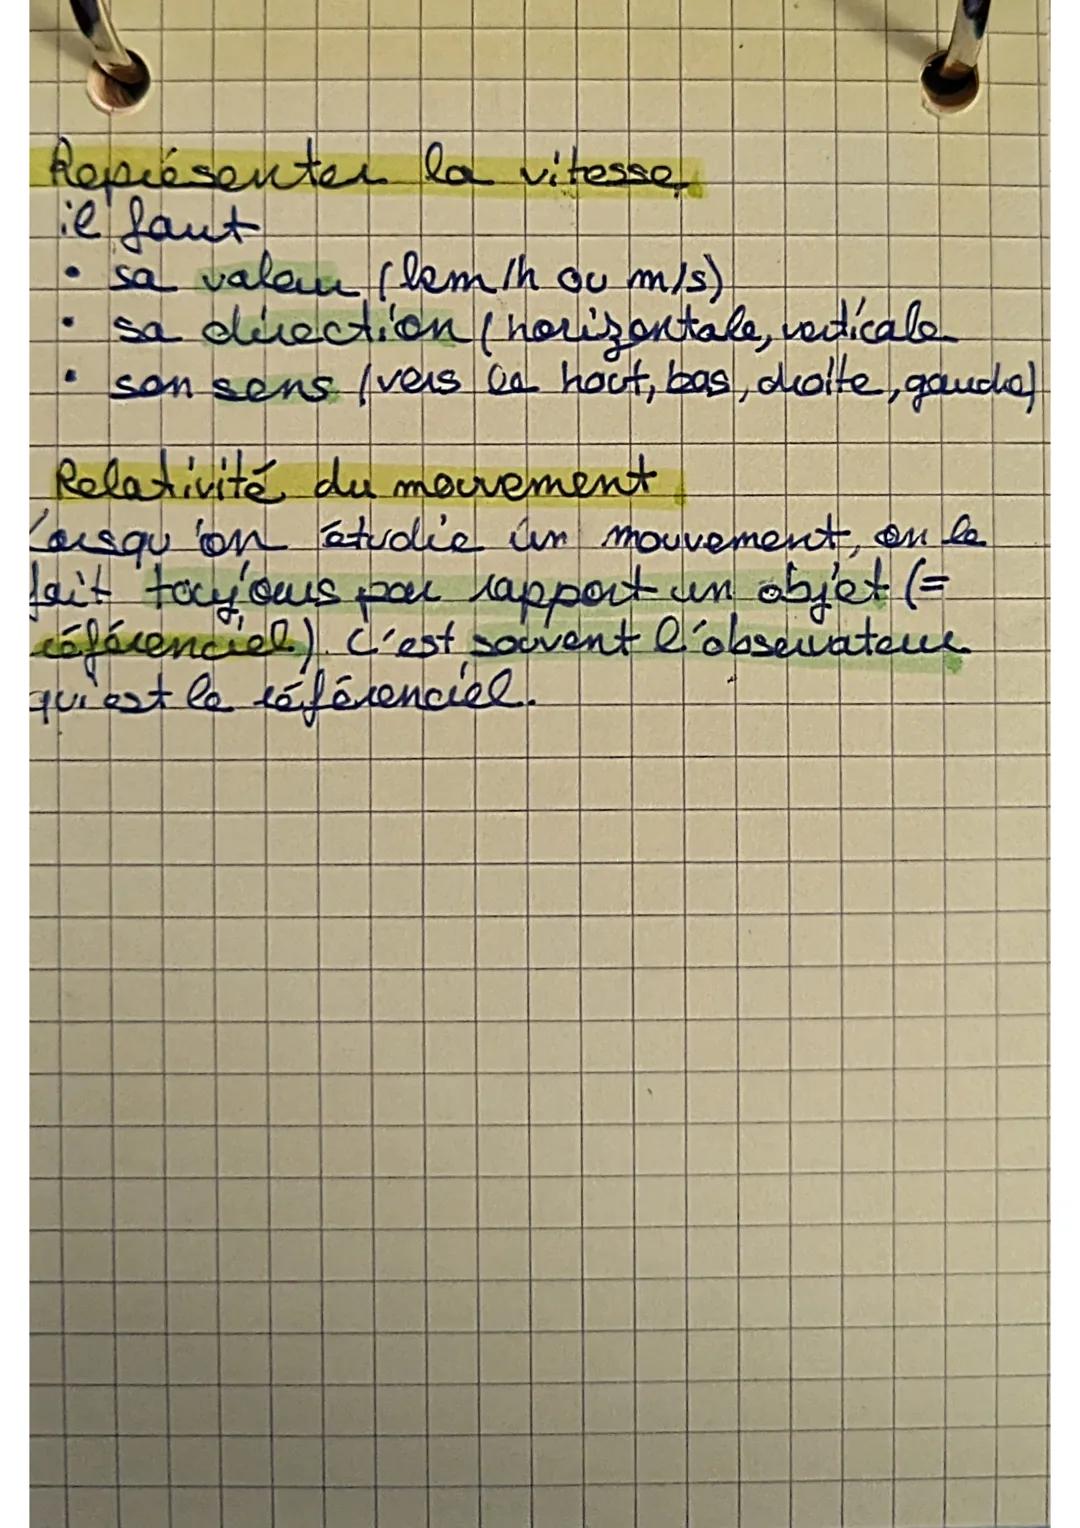 Représenter la vitesse
il faut
• sa valeur (km/h ou m/s)
• sa direction (horizontale, verticale
• son sens (vers le haut, bas, droite, gauche)
Relativité du mouvement
Lorsqu'on étudie un mouvement, on le
fait toujours par rapport un objet (=
référenciel). C'est souvent l'observateur
qui est le référenciel.